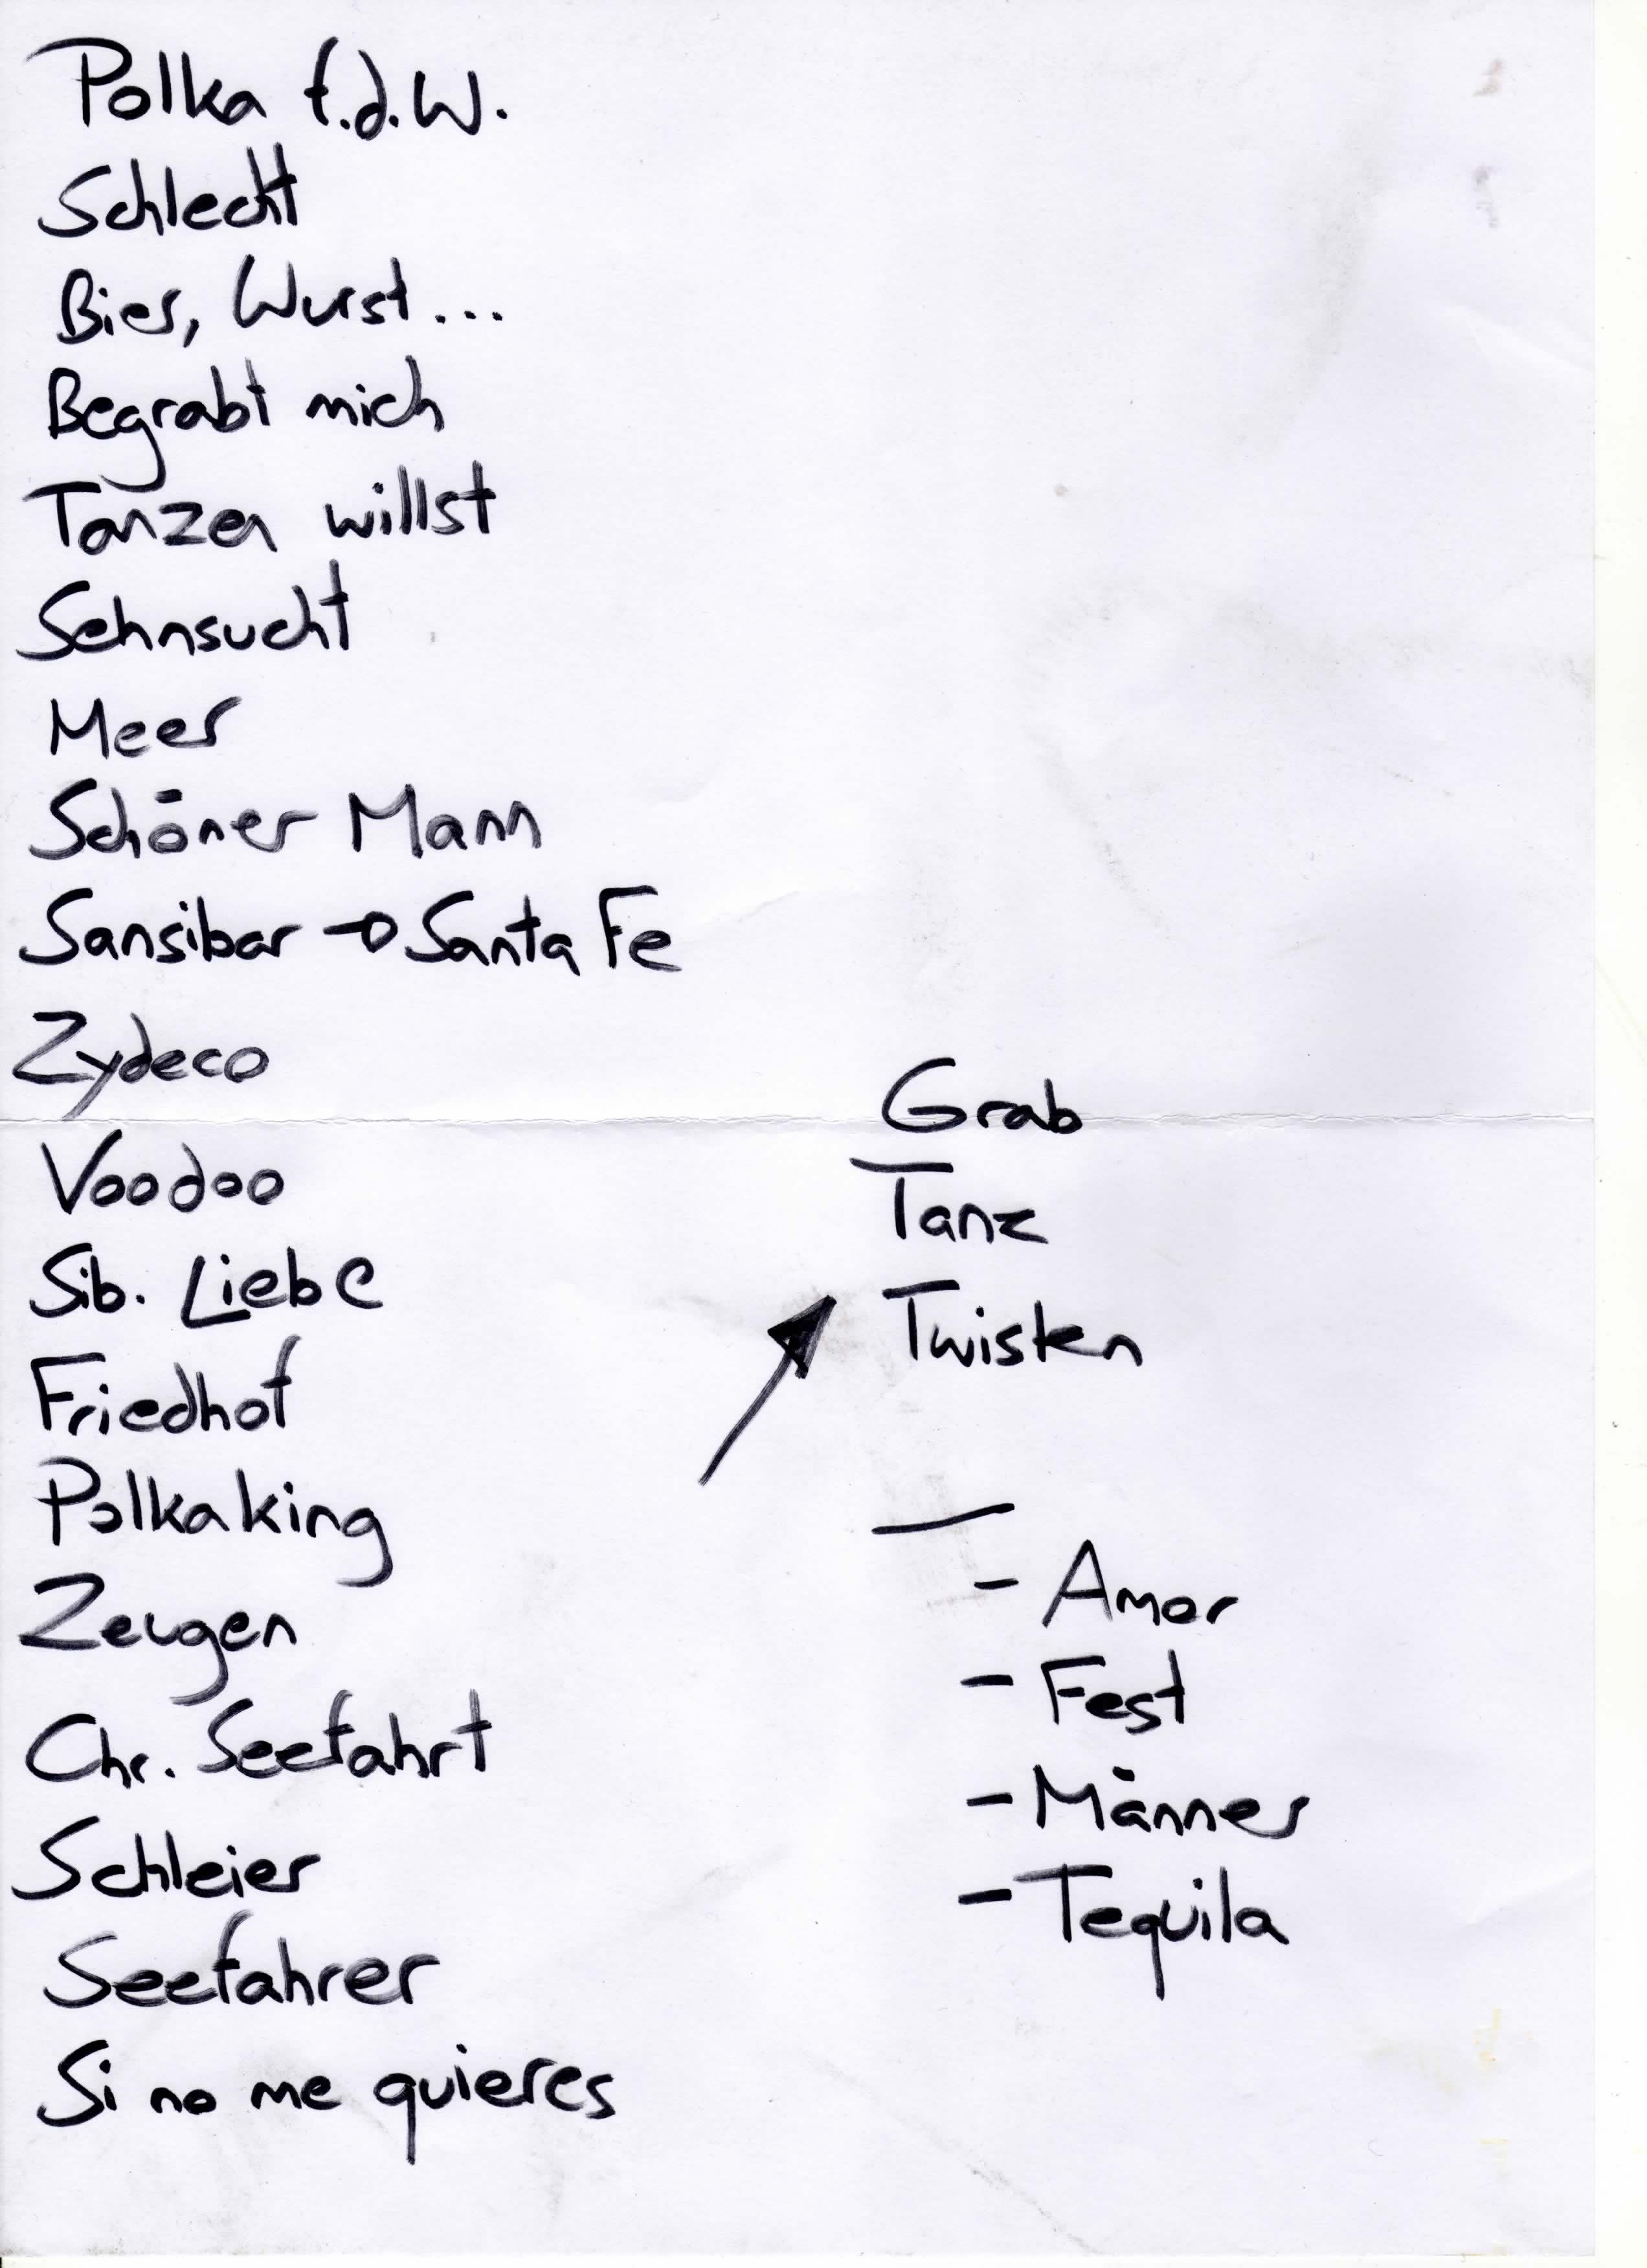 Polka f.d.W.
Schlecht
Bier, Wurst...
Begrabt mich
Tanzen willst
Sehnsucht
Meer
Schöner Mann
Sansibar → Santa Fe
Zydeco
Voodoo
Sib. Liebe
Friedhof
Polkaking
Zeugen
Chr. Seefahrt
Schleier
Seefahrer
Si no me quieres
Grab
Tanz
Twisten
- Amor
- Fest
- Männer
- Tequila